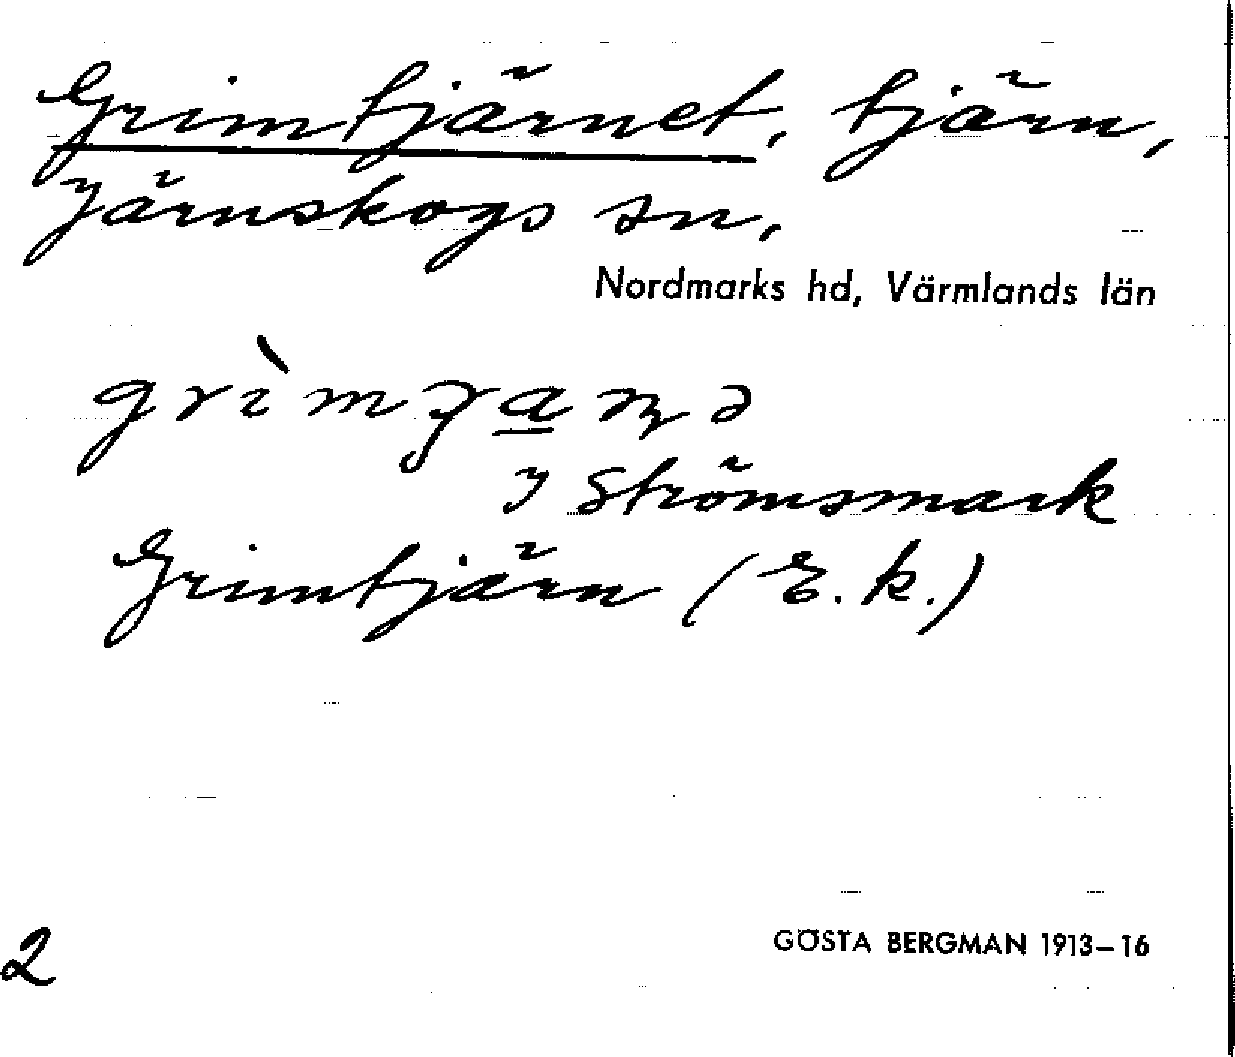 Grimtjärnet, tjärn,
Järnskogs sn,
Nordmarks hd, Värmlands län
I Strömsmark
Grimtjärn (E.k.)
2
GÖSTA BERGMAN 1913–16